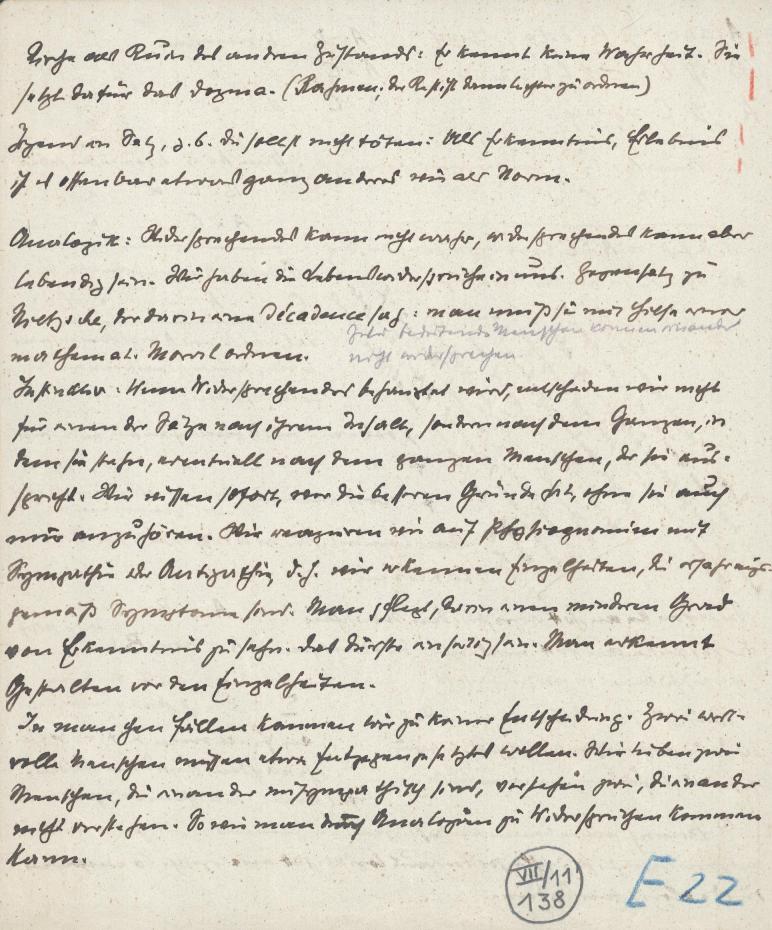 Kirche als Ruin des andren Zustands: Er kennt keine Wahrheit. Sie
setzt dafür das Dogma. (Rahmen; der Rest ist dann leichter zu ordnen)
Irgend ein Satz, z. b. du sollst nicht töten: Als Erkenntnis, Erlebnis
ist es offenbar etwas ganz anderes wie als Norm.
Analogik: Widersprechendes kann nicht wahr, widersprechendes kann aber
lebendig sein. Wir haben die Lebenswidersprüche in uns. Gegensatz zu
Nietzsche, der darin eine Décadence sah: man muß sie mit Hilfe einer
mathemat. Moral ordnen.
Zwei bedeutende Menschen können einander
nicht widersprechen.
Instinktiv: Wenn Widersprechendes behauptet wird, entscheiden wir nicht
für einen der Sätze nach ihrem Inhalt, sondern nach dem Ganzen, in
dem sie stehn, eventuell nach dem ganzen Menschen, der sie aus-
spricht. Wir wissen sofort, wer die besseren Gründe hat, ohne sie auch
nur anzuhören. Wir reagieren wie auf Physiognomien mit
Sympathie oder Antipathie, d. h. wir erkennen Einzelheiten, die erfahrungs-
gemäß Symptome sind. Man pflegt, darin einen minderen Grad
von Erkenntnis zu sehn. Das dürfte unsinnig sein. Man erkennt
Gestalten vor den Einzelheiten.
In manchen Fällen kommen wir zu keiner Entscheidung. Zwei wert-
volle Menschen müssen etwa Entgegengesetztes wollen. Wir lieben zwei
Menschen, die einander unsympathisch sind, verstehen zwei, die einander
nicht verstehen. So wie man durch Analogien zu Widersprüchen kommen
kann.
VII/11
138
E 22